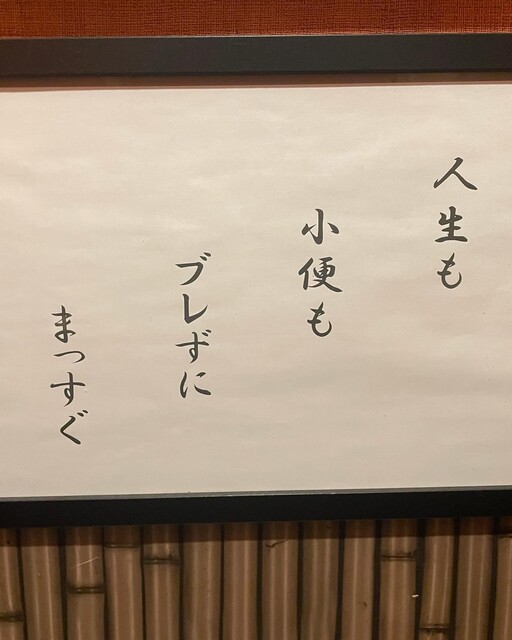 人生も
小便も
ブレずに
まっすぐ